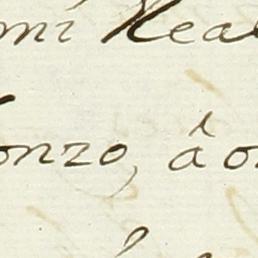 mi Real
onzo, â o